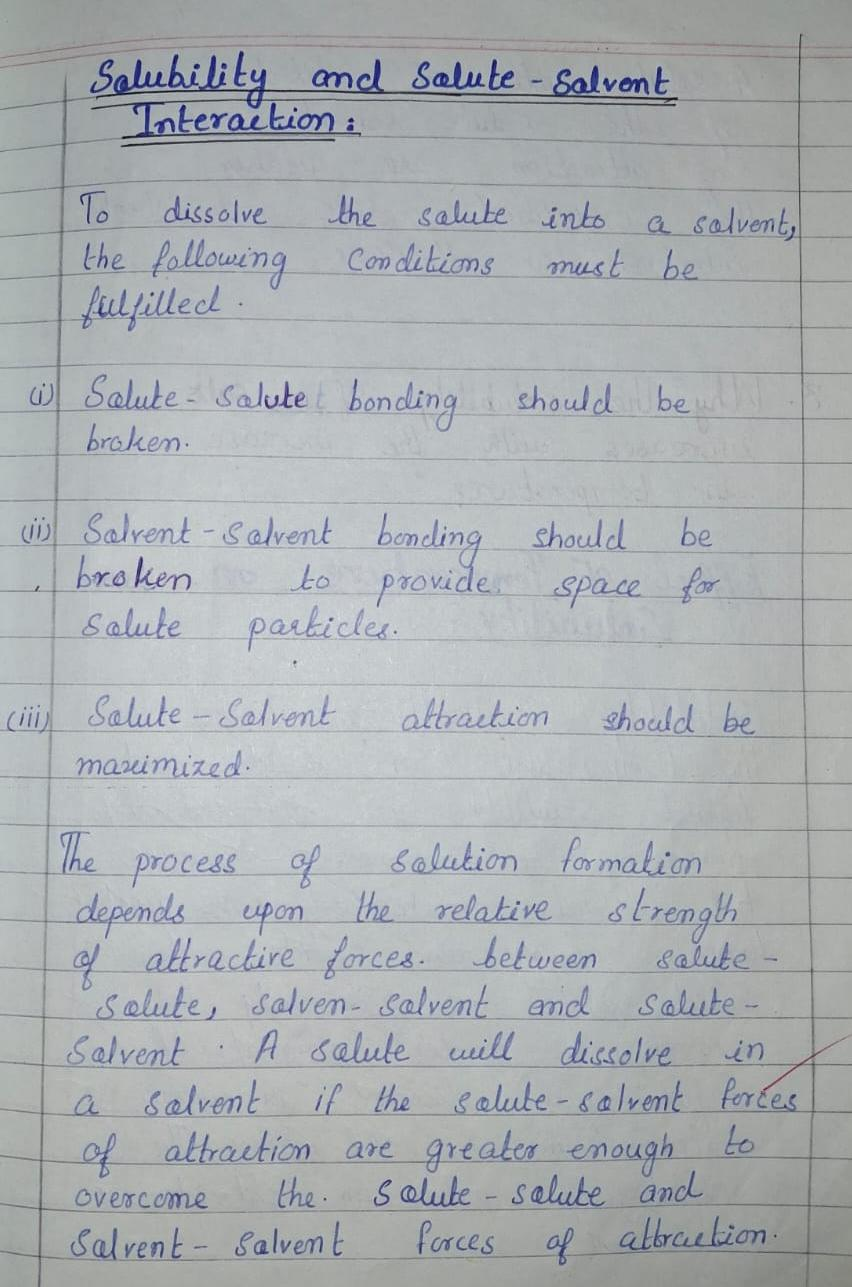 Solubility and Solute - Solvent
Interaction :
To dissolve the solute into a solvent,
the following Conditions must be
fulfilled .
(i) Solute - Solute bonding should be
broken.
(ii) Solvent - Solvent bonding should be
broken to provide space for
Solute particles.
(iii) Solute - Solvent attraction should be
maximized.
The process of solution formation
depends upon the relative strength
of attractive forces. between solute -
solute, solven - solvent and solute -
Solvent . A solute will dissolve in
a solvent if the solute - solvent forces
of attraction are greater enough to
overcome the. Solute - solute and
Solvent - Solvent forces of attraction.